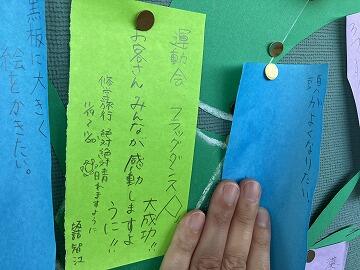 頭がよくなりたい
運動会 フラッグダンス
大成功!!
お客さんみんなが感動しますよ
うに!!
修学旅行 絶対絶対晴れますように
黒板に大きく
絵をかきたい。